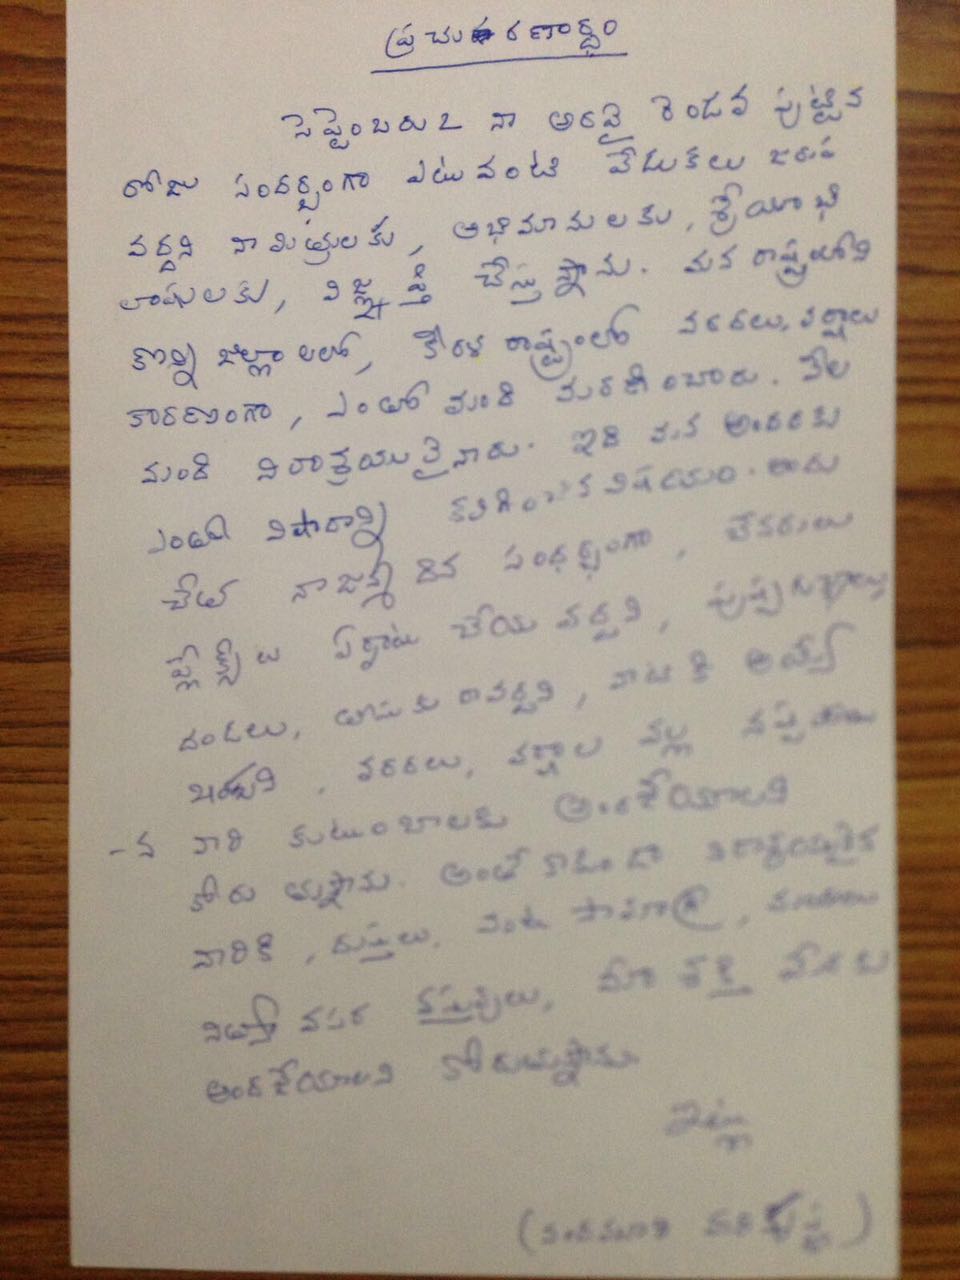 ప్రచురణార్థం
సెప్టెంబరు 2 నా అరవై రెండవ పుట్టిన
రోజు సందర్భంగా ఎటువంటి వేడుకలు జరుప
వద్దని నా మిత్రులకు, అభిమానులకు, శ్రేయోభి
లాషులకు, విజ్ఞప్తి చేస్తున్నాను. మన రాష్ట్రంలోని
కొన్ని జిల్లాలలో, కేరళ రాష్ట్రంలో వరదలు, వర్షాలు
కారణంగా, ఎంతో మంది మరణించారు. వేల
మంది నిరాశ్రయులైనారు. ఇది మన అందరకు
ఎంతో విషాదాన్ని కలిగించిన విషయం. అందు
చేత నా జన్మదిన సందర్భంగా, బేనరులు
ఫ్లెక్సీలు ఏర్పాటు చేయవద్దని, పుష్పగుచ్ఛాలు,
దండలు, తీసుకురావద్దని, వాటికి అయ్యే
ఖర్చుని, వరదలు, వర్షాల వల్ల నష్టపోయి
-న వారి కుటుంబాలకు అందచేయాలని
కోరుతున్నాను. అంతేకాకుండా నిరాశ్రయులైన
వారికి, దుస్తులు, వంట సామాగ్రి, మందులు
నిత్యావసర వస్తువులు, మీ శక్తి మేరకు
అందచేయాలని కోరుచున్నాను.
ఇట్లు
(నందమూరి హరికృష్ణ)